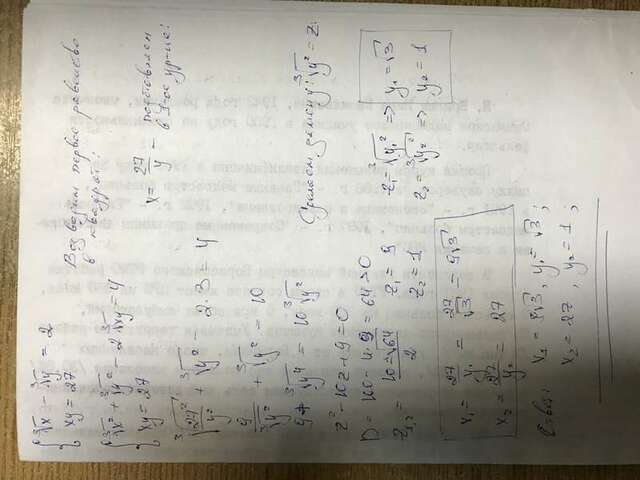 { ∛x − ∛y = 2
xy = 27
Возводим первое равенство
в квадрат:
{ ∛x² + ∛y² − 2∛xy = 4
xy = 27
x = 27/y — подставляем
в 1-ое ур-ие:
∛(27²/y²) + ∛y² − 2·3 = 4
9/∛y² + ∛y² = 10
9 + ∛y⁴ = 10∛y²
Сделаем замену: ∛y² = z
z² − 10z + 9 = 0
D = 100 − 4·9 = 64 > 0
z₁,₂ = (10 ± √64)/2
z₁ = 9
z₂ = 1
z₁ = ∛y₁² => y₁ = √3
z₂ = ∛y₂² => y₂ = 1
x₁ = 27/y₁ = 27/√3 = 9√3
x₂ = 27/y₂ = 27
Ответ: x₁ = 9√3, y₁ = √3;
x₂ = 27, y₂ = 1;